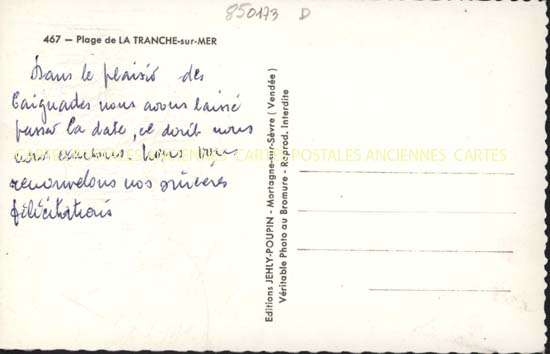 850173 D
467 — Plage de LA TRANCHE-sur-MER
Dans le plaisir des
baignades nous avons laissé
passer la date, et dont nous
nous excusons. Nous vous
renouvelons nos sincères
félicitations
CARTES POSTALES ANCIENNES CARTES
Editions JEHLY-POUPIN - Mortagne-sur-Sèvre (Vendée)
Véritable Photo au Bromure - Reprod. Interdite